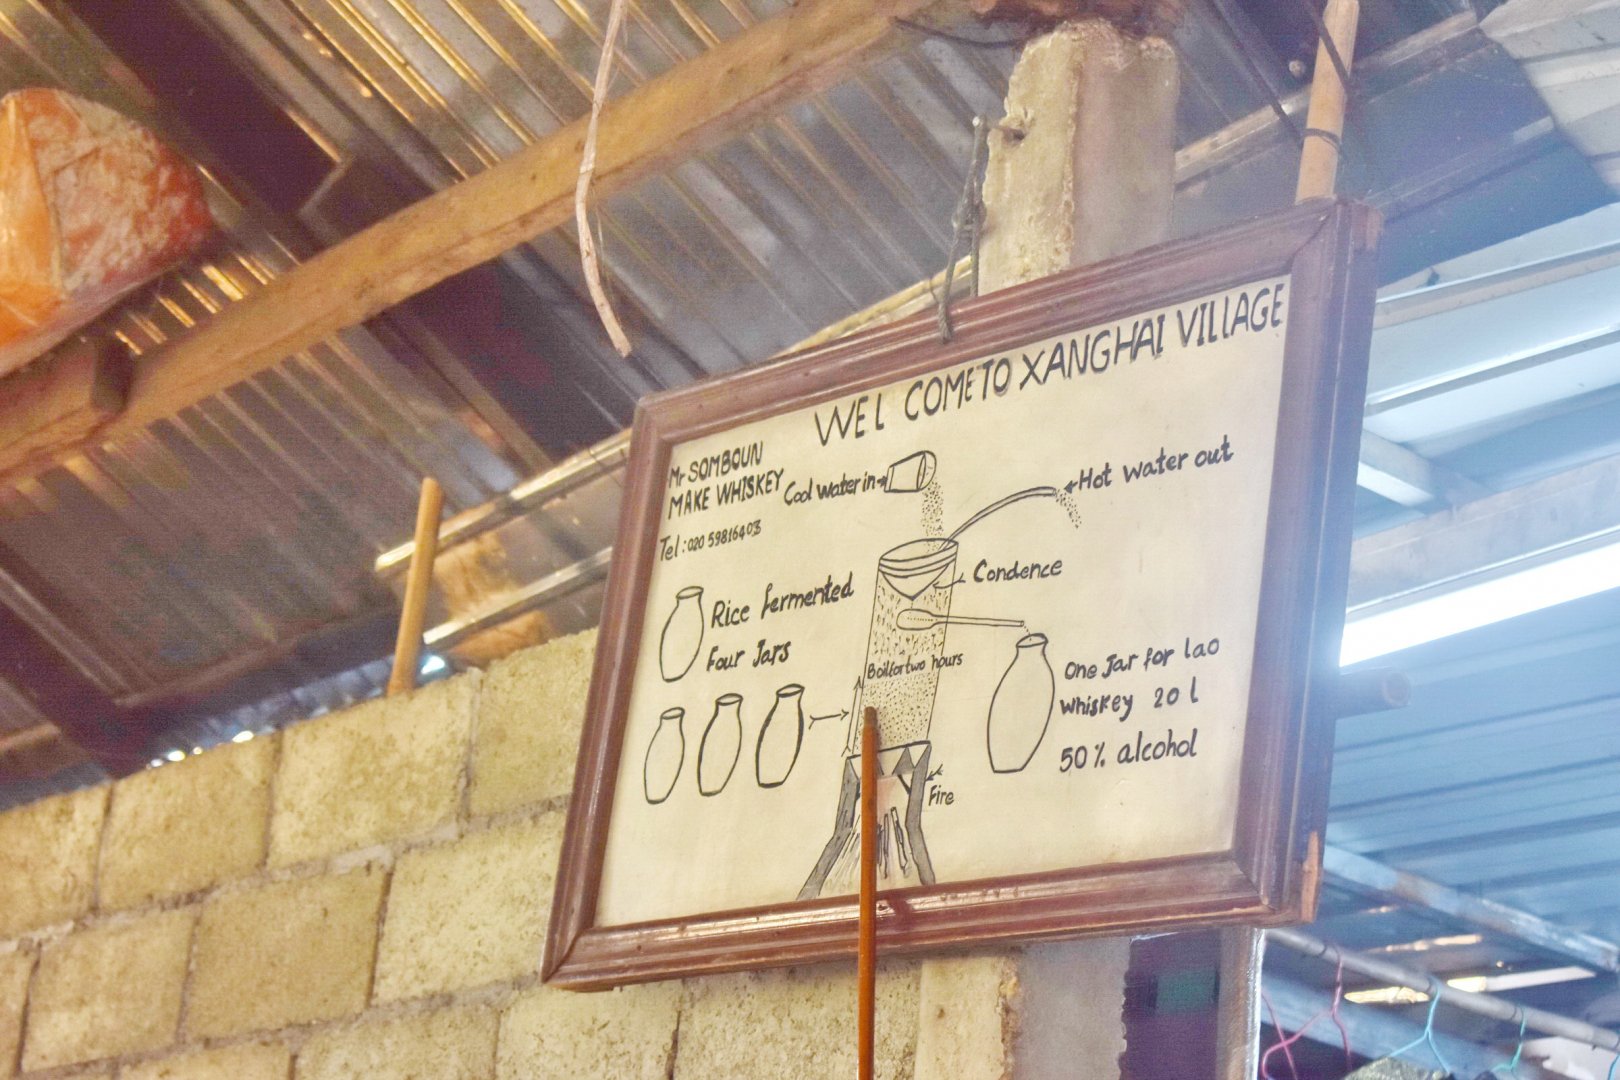 WEL COME TO XANGHAI VILLAGE
Mr SOMBOUN
MAKE WHISKEY
Tel: 020 59816403
Cool water in
Hot water out
Condence
Rice fermented
Four Jars
Boil for two hours
One Jar for lao
whiskey 20 l
50% alcohol
Fire